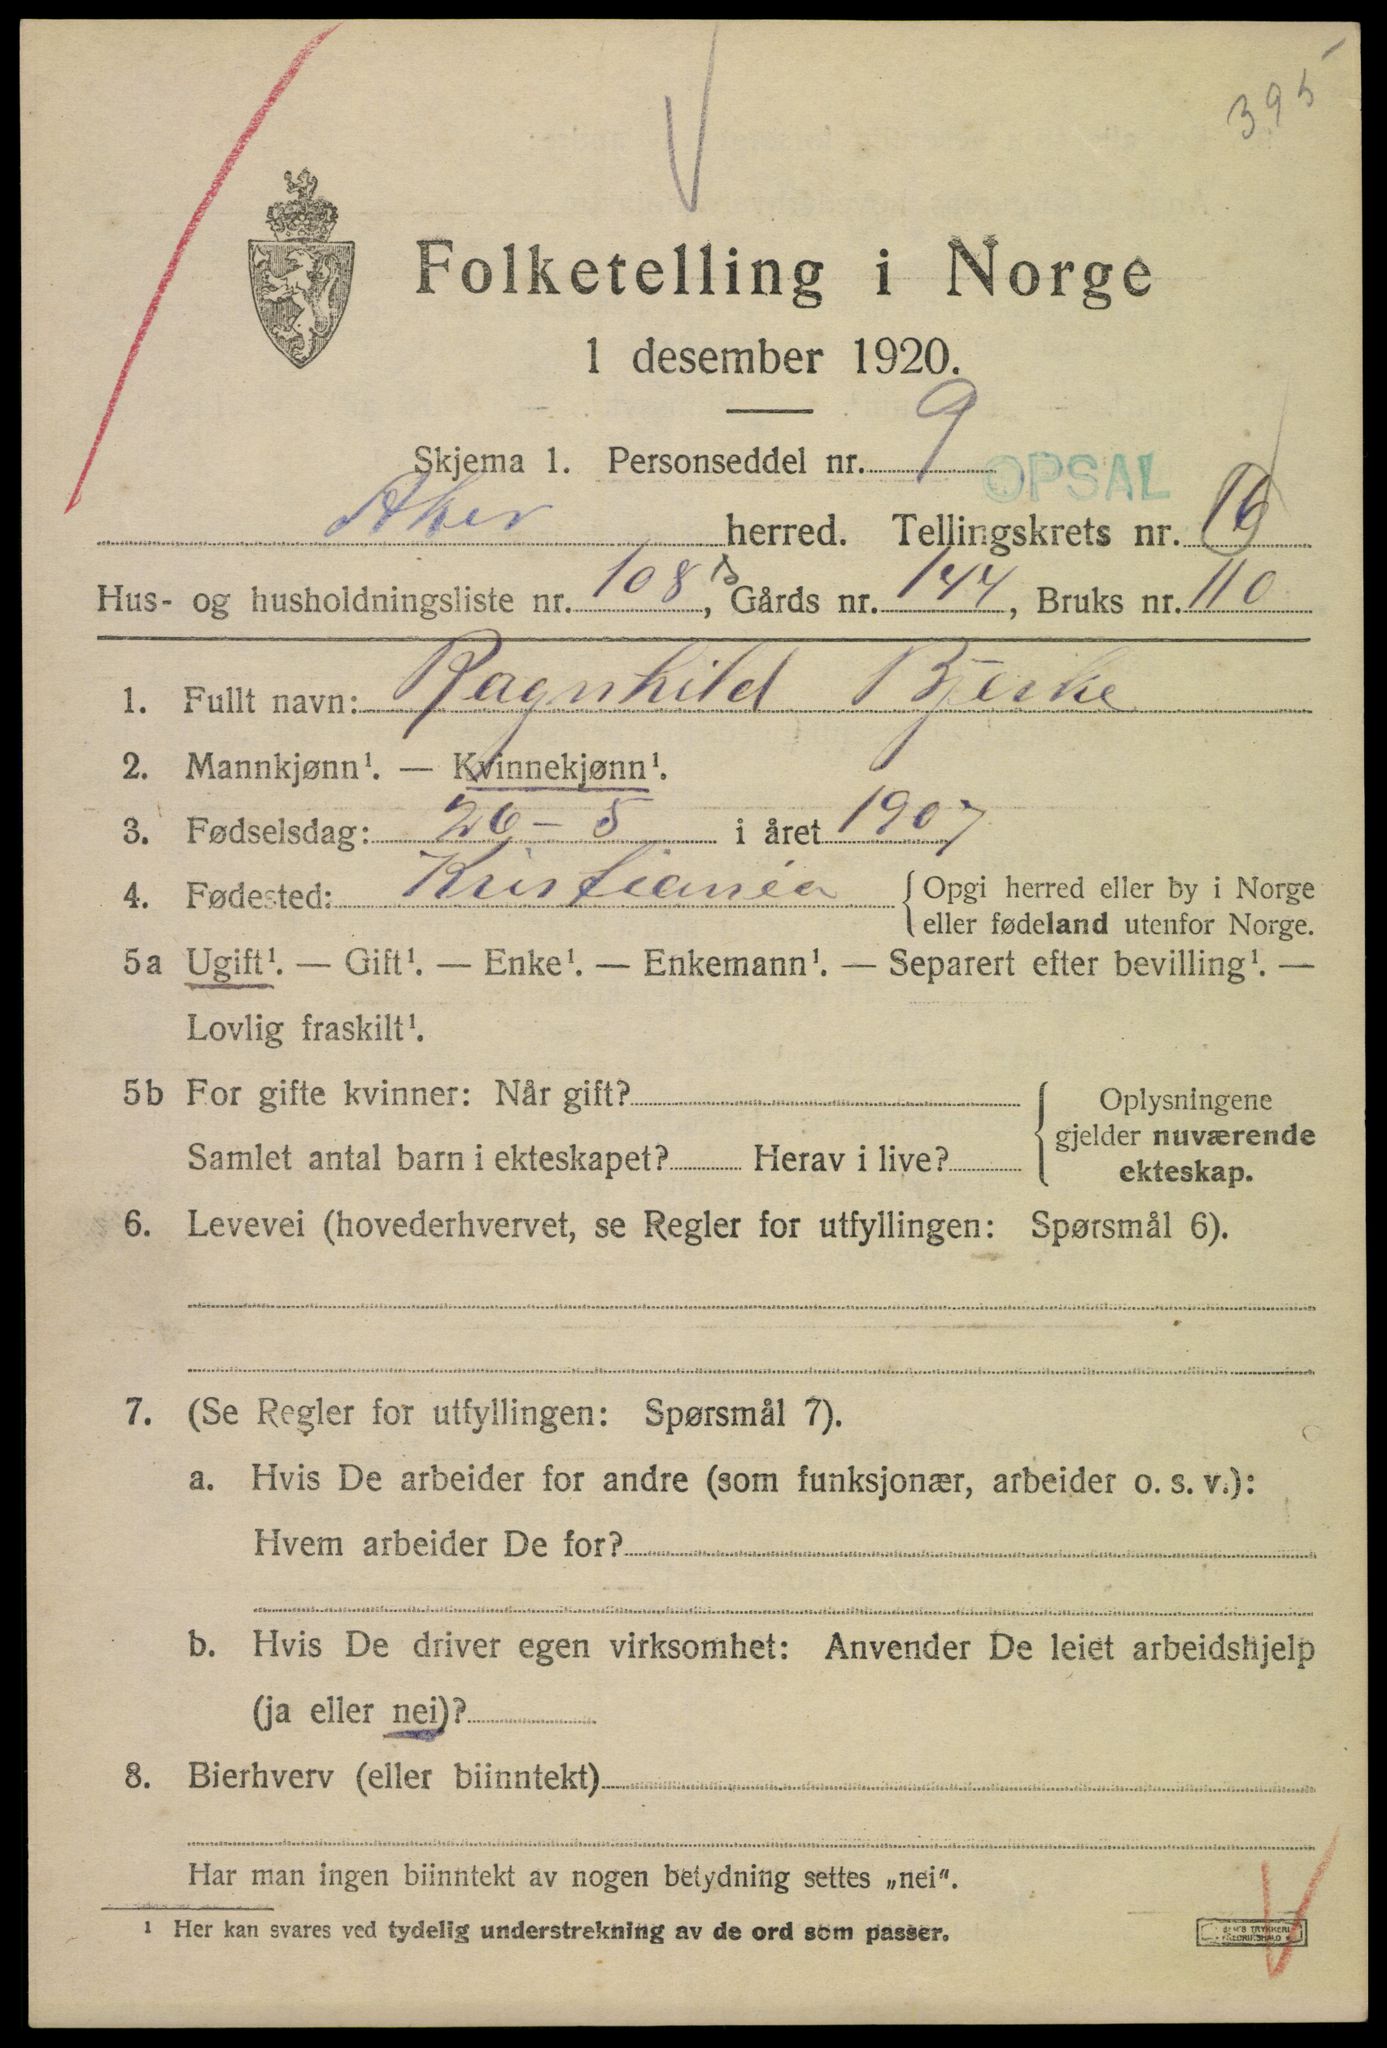 395
Folketelling i Norge
1 desember 1920.
Skjema 1. Personseddel nr. 9
OPSAL
Aker herred. Tellingskrets nr. 16
Hus- og husholdningsliste nr. 108 b, Gårds nr. 144, Bruks nr. 110
1. Fullt navn: Ragnhild Bjerke
2. Mannkjønn¹. — Kvinnekjønn¹.
3. Fødselsdag: 26 - 5 i året 1907
4. Fødested: Kristiania { Opgi herred eller by i Norge
eller fødeland utenfor Norge.
5a Ugift¹. — Gift¹. — Enke¹. — Enkemann¹. — Separert efter bevilling¹. —
Lovlig fraskilt¹.
5b For gifte kvinner: Når gift?
Samlet antal barn i ekteskapet? Herav i live?
{ Oplysningene
gjelder nuværende
ekteskap.
6. Levevei (hovederhvervet, se Regler for utfyllingen: Spørsmål 6).
7. (Se Regler for utfyllingen: Spørsmål 7).
a. Hvis De arbeider for andre (som funksjonær, arbeider o. s. v.):
Hvem arbeider De for?
b. Hvis De driver egen virksomhet: Anvender De leiet arbeidshjelp
(ja eller nei)?
8. Bierhverv (eller biinntekt)
Har man ingen biinntekt av nogen betydning settes „nei“.
¹ Her kan svares ved tydelig understrekning av de ord som passer.
TRYKKERI